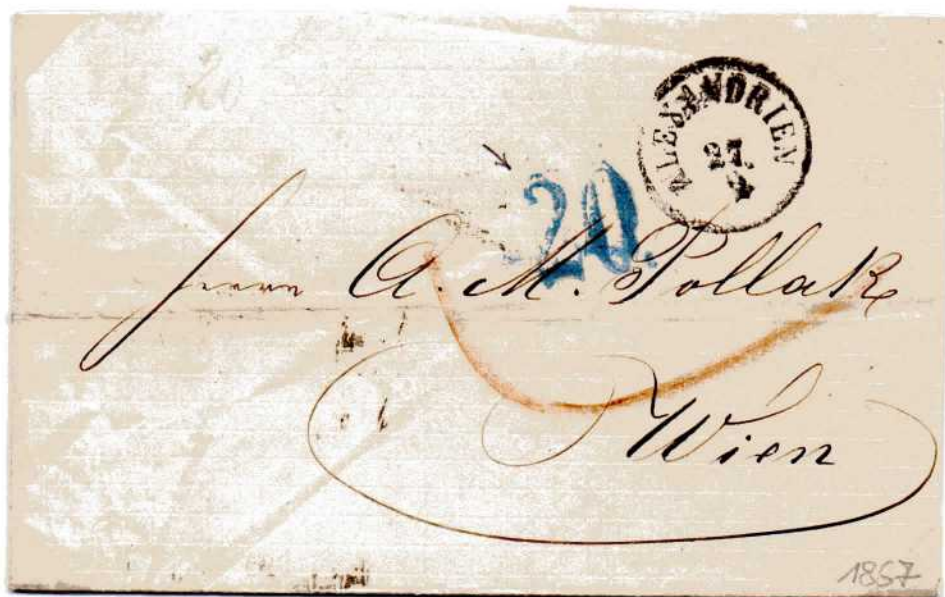 ALEXANDRIEN
27.
20.
Herrn A. M. Pollak
Wien
1867